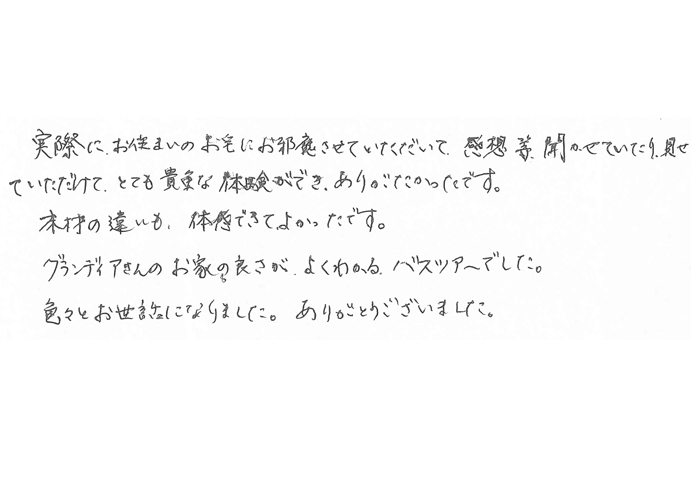 実際に、お住まいのお宅にお邪魔させていただいて、感想等、聞かせていたり、見せ
ていただけて、とても貴重な体験ができ、ありがたかったです。
床材の違いも、体感できてよかったです。
グランディアさんのお家の良さが、よくわかる、バスツアーでした。
色々とお世話になりました。ありがとうございました。